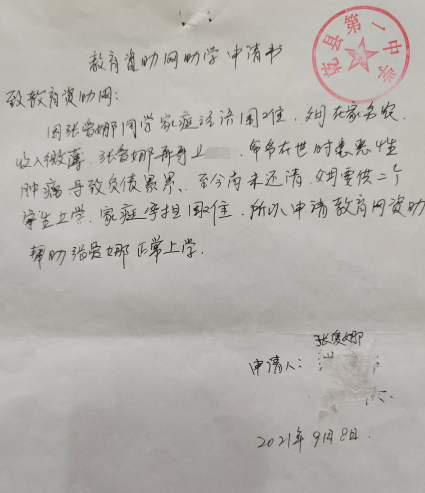 教育资助网助学申请书
乾县第一中学
致教育资助网:
因张爱娜同学家庭经济困难,父母在家务农,
收入微薄,张爱娜哥哥上 爷爷在世时患恶性
肿瘤导致负债累累、至今尚未还清,父母要供二个
学生上学,家庭承担困难,所以申请教育网资助
帮助张爱娜正常上学.
张爱娜
申请人:
2021年9月8日.